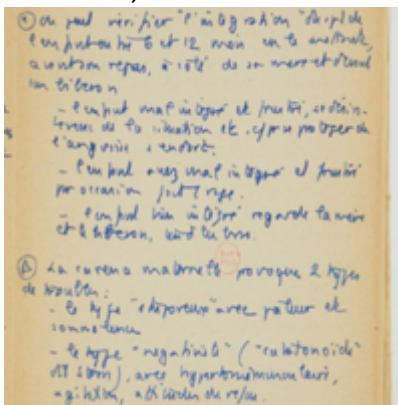 on peut vérifier l'intégration de
l'enfant entre 6 et 12 mois en le mettant,
avant son repas, à côté de sa mère et devant
son biberon
- l'enfant mal intégré et frustré, se désin-
téresse de la situation et, pour se protéger de
l'angoisse s'endort.
- l'enfant assez mal intégré et frustré
par occasion
- l'enfant bien intégré regarde la mère
et le biberon, tend les bras.
La carence maternelle provoque 2 types
de troubles :
- le type "stuporeux" avec pâleur et
somnolence
- le type "négativiste" ("catatonoïde"
), avec hypertonie musculaire,
agitation, attitudes de refus.